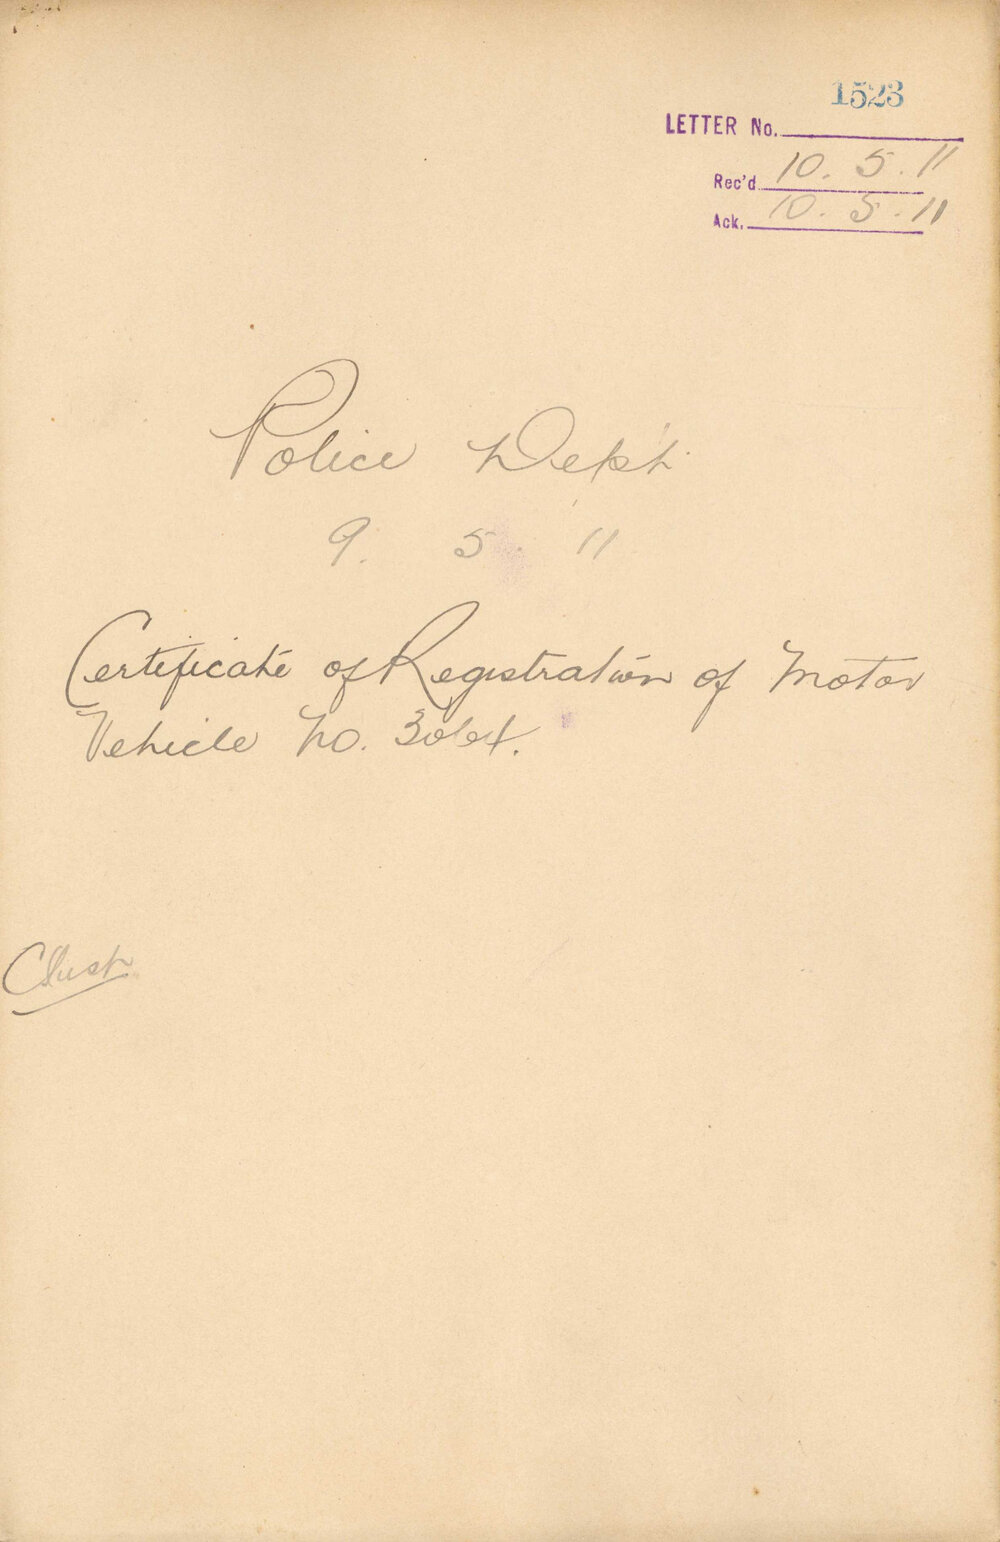 1523
LETTER No.
Rec'd 10. 5. 11
Ack. 10. 5. 11
Police Dep't.
9. 5. 11
Certificate of Registration of Motor
Vehicle No.